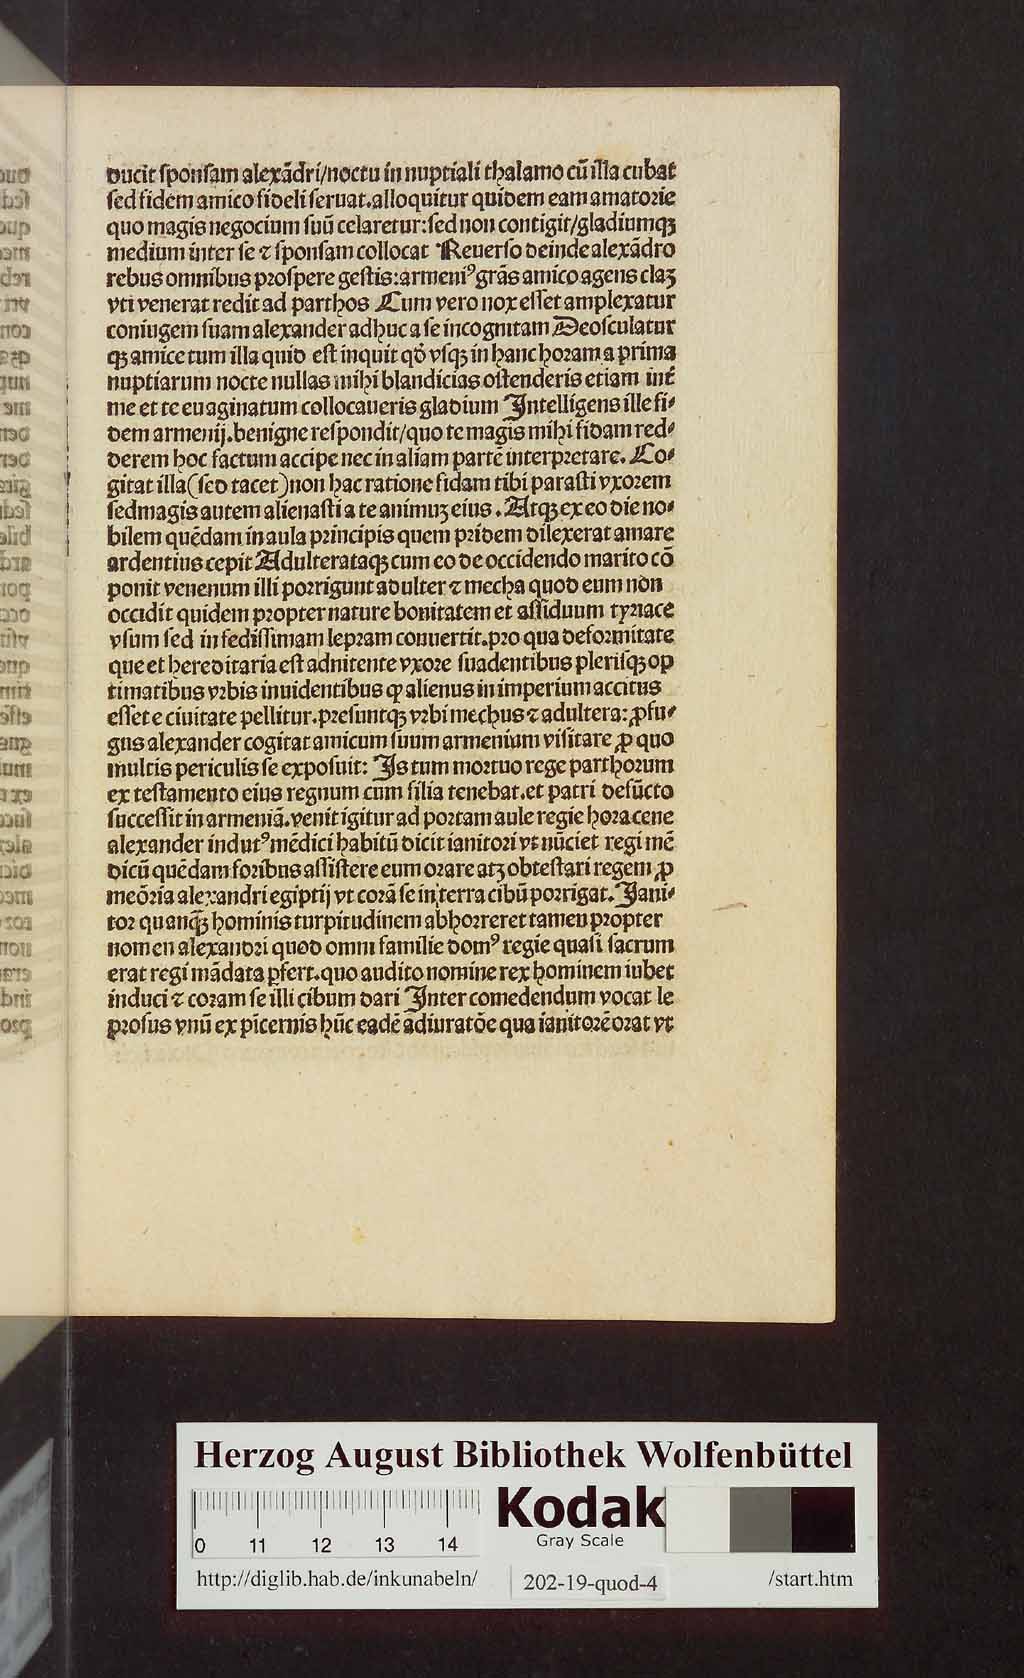 ducit sponsam alexādri/noctu in nuptiali thalamo cū illa cubat
sed fidem amico fideli seruat.alloquitur quidem eam amatorie
quo magis negocium suū celaretur:sed non contigit/gladiumqꝫ
medium inter se ⁊ sponsam collocat Reuerso deinde alexādro
rebus omnibus prospere gestis:armeniꝰ grās amico agens claꝫ
vti venerat redit ad parthos Cum vero nox esset amplexatur
coniugem suam alexander adhuc a se incognitam Deosculatur
qꝫ amice tum illa quid est inquit qđ vsqꝫ in hanc horam a prima
nuptiarum nocte nullas mihi blandicias ostenderis etiam int̄
me et te euaginatum collocaueris gladium Intelligens ille fi⸗
dem armenij.benigne respondit/quo te magis mihi fidam red⸗
derem hoc factum accipe nec in aliam partē interpretare. Co⸗
gitat illa(sed tacet)non hac ratione fidam tibi parasti vxorem
sedmagis autem alienasti a te animuꝫ eius. Atqꝫ ex eo die no⸗
bilem quēdam in aula principis quem pridem dilexerat amare
ardentius cepit Adulterataqꝫ cum eo de occidendo marito cō
ponit venenum illi porrigunt adulter ⁊ mecha quod eum non
occidit quidem propter nature bonitatem et assiduum tyriace
vsum sed in fedissimam lepram conuertit.pro qua deformitate
que et hereditaria est adnitente vxore suadentibus plerisqꝫ op
timatibus vrbis inuidentibus ꝙ alienus in imperium accitus
esset e ciuitate pellitur.presuntqꝫ vrbi mechus ⁊ adultera:ꝓfu⸗
gus alexander cogitat amicum suum armenium visitare ꝓ quo
multis periculis se exposuit: Is tum mortuo rege parthorum
ex testamento eius regnum cum filia tenebat.et patri defūcto
successit in armeniā.venit igitur ad portam aule regie hora cene
alexander indutꝰ mēdici habitū dicit ianitori vt nūciet regi mē
dicū quēdam foribus assistere eum orare atꝫ obtestari regem ꝓ
meōria alexandri egiptij vt corā se in terra cibū porrigat. Iani⸗
tor quanqꝫ̄ hominis turpitudinem abhorreret tamen propter
nomen alexandri quod omni familie domꝰ regie quasi sacrum
erat regi mādata ꝑfert.quo audito nomine rex hominem iubet
induci ⁊ coram se illi cibum dari Inter comedendum vocat le
prosus vnū ex pīcernis hūc eadē adiuratōe qua ianitorē orat vt
Herzog August Bibliothek Wolfenbüttel
Kodak
Gray Scale
0 11 12 13 14
http://diglib.hab.de/inkunabeln/ 202-19-quod-4 /start.htm